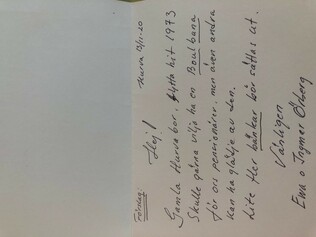 Förslag: Hurva 13/11-20
Hej!
Gamla Hurvabor. Flytta hit 1973
Skulle gärna vilja ha en Boulbana
för oss pensionärer. men även andra
kan ha glädje av den.
Lite fler bänkar bör sättas ut.
Vänligen
Ewa o Ingmar Örberg